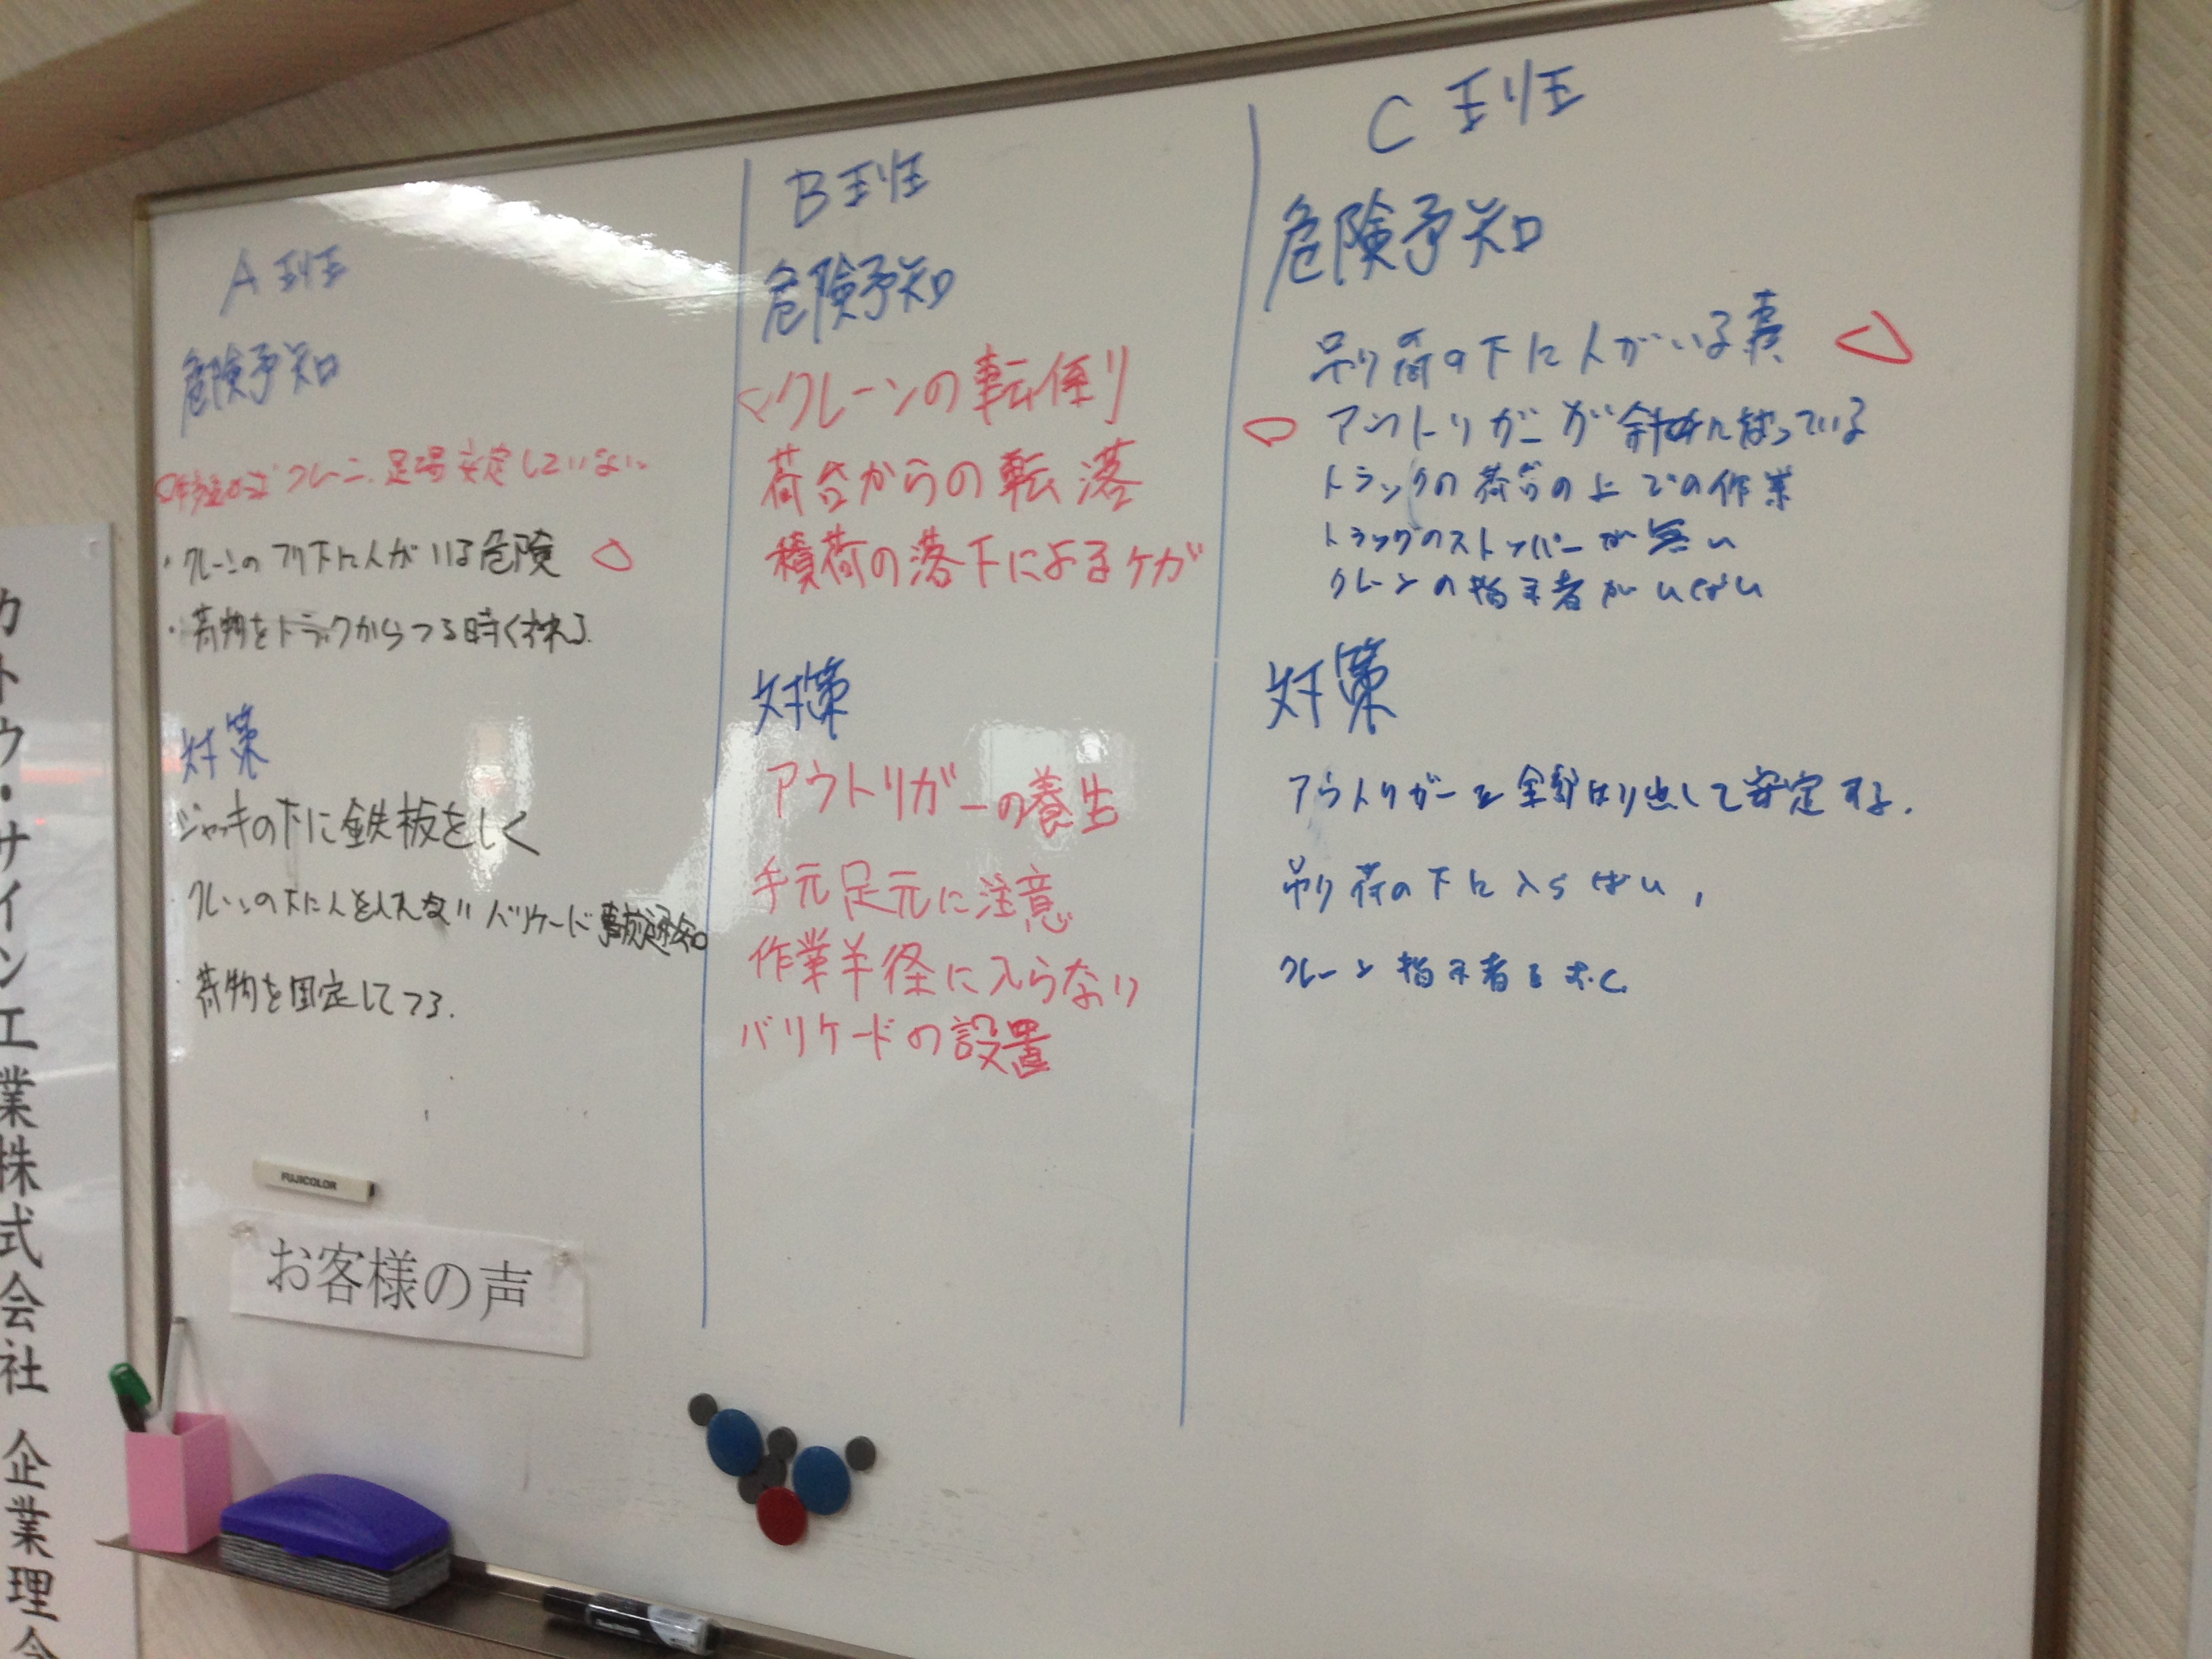 A班
危険予知
クレーン、足場安定していない
・クレーンのフリ下に人がいる危険
・荷物をトラックからつる時くずれる.
対策
ジャッキの下に鉄板をしく
クレーンの下に人を入れない バリケード
荷物を固定してつる.
FUJICOLOR
お客様の声
B班
危険予知
クレーンの転倒
荷台からの転落
積荷の落下によるケガ
対策
アウトリガーの養生
手元足元に注意
作業半径に入らない
バリケードの設置
C班
危険予知
吊り荷の下に人がいる事
アウトリガーが斜めになっている
トラックの荷台の上での作業
トラックのストッパーが無い
クレーンの指示者がいない
対策
アウトリガーを全部はり出して安定する.
吊り荷の下に入らない.
クレーン指示者をおく.
カトウ・サイン工業株式会社 企業理念